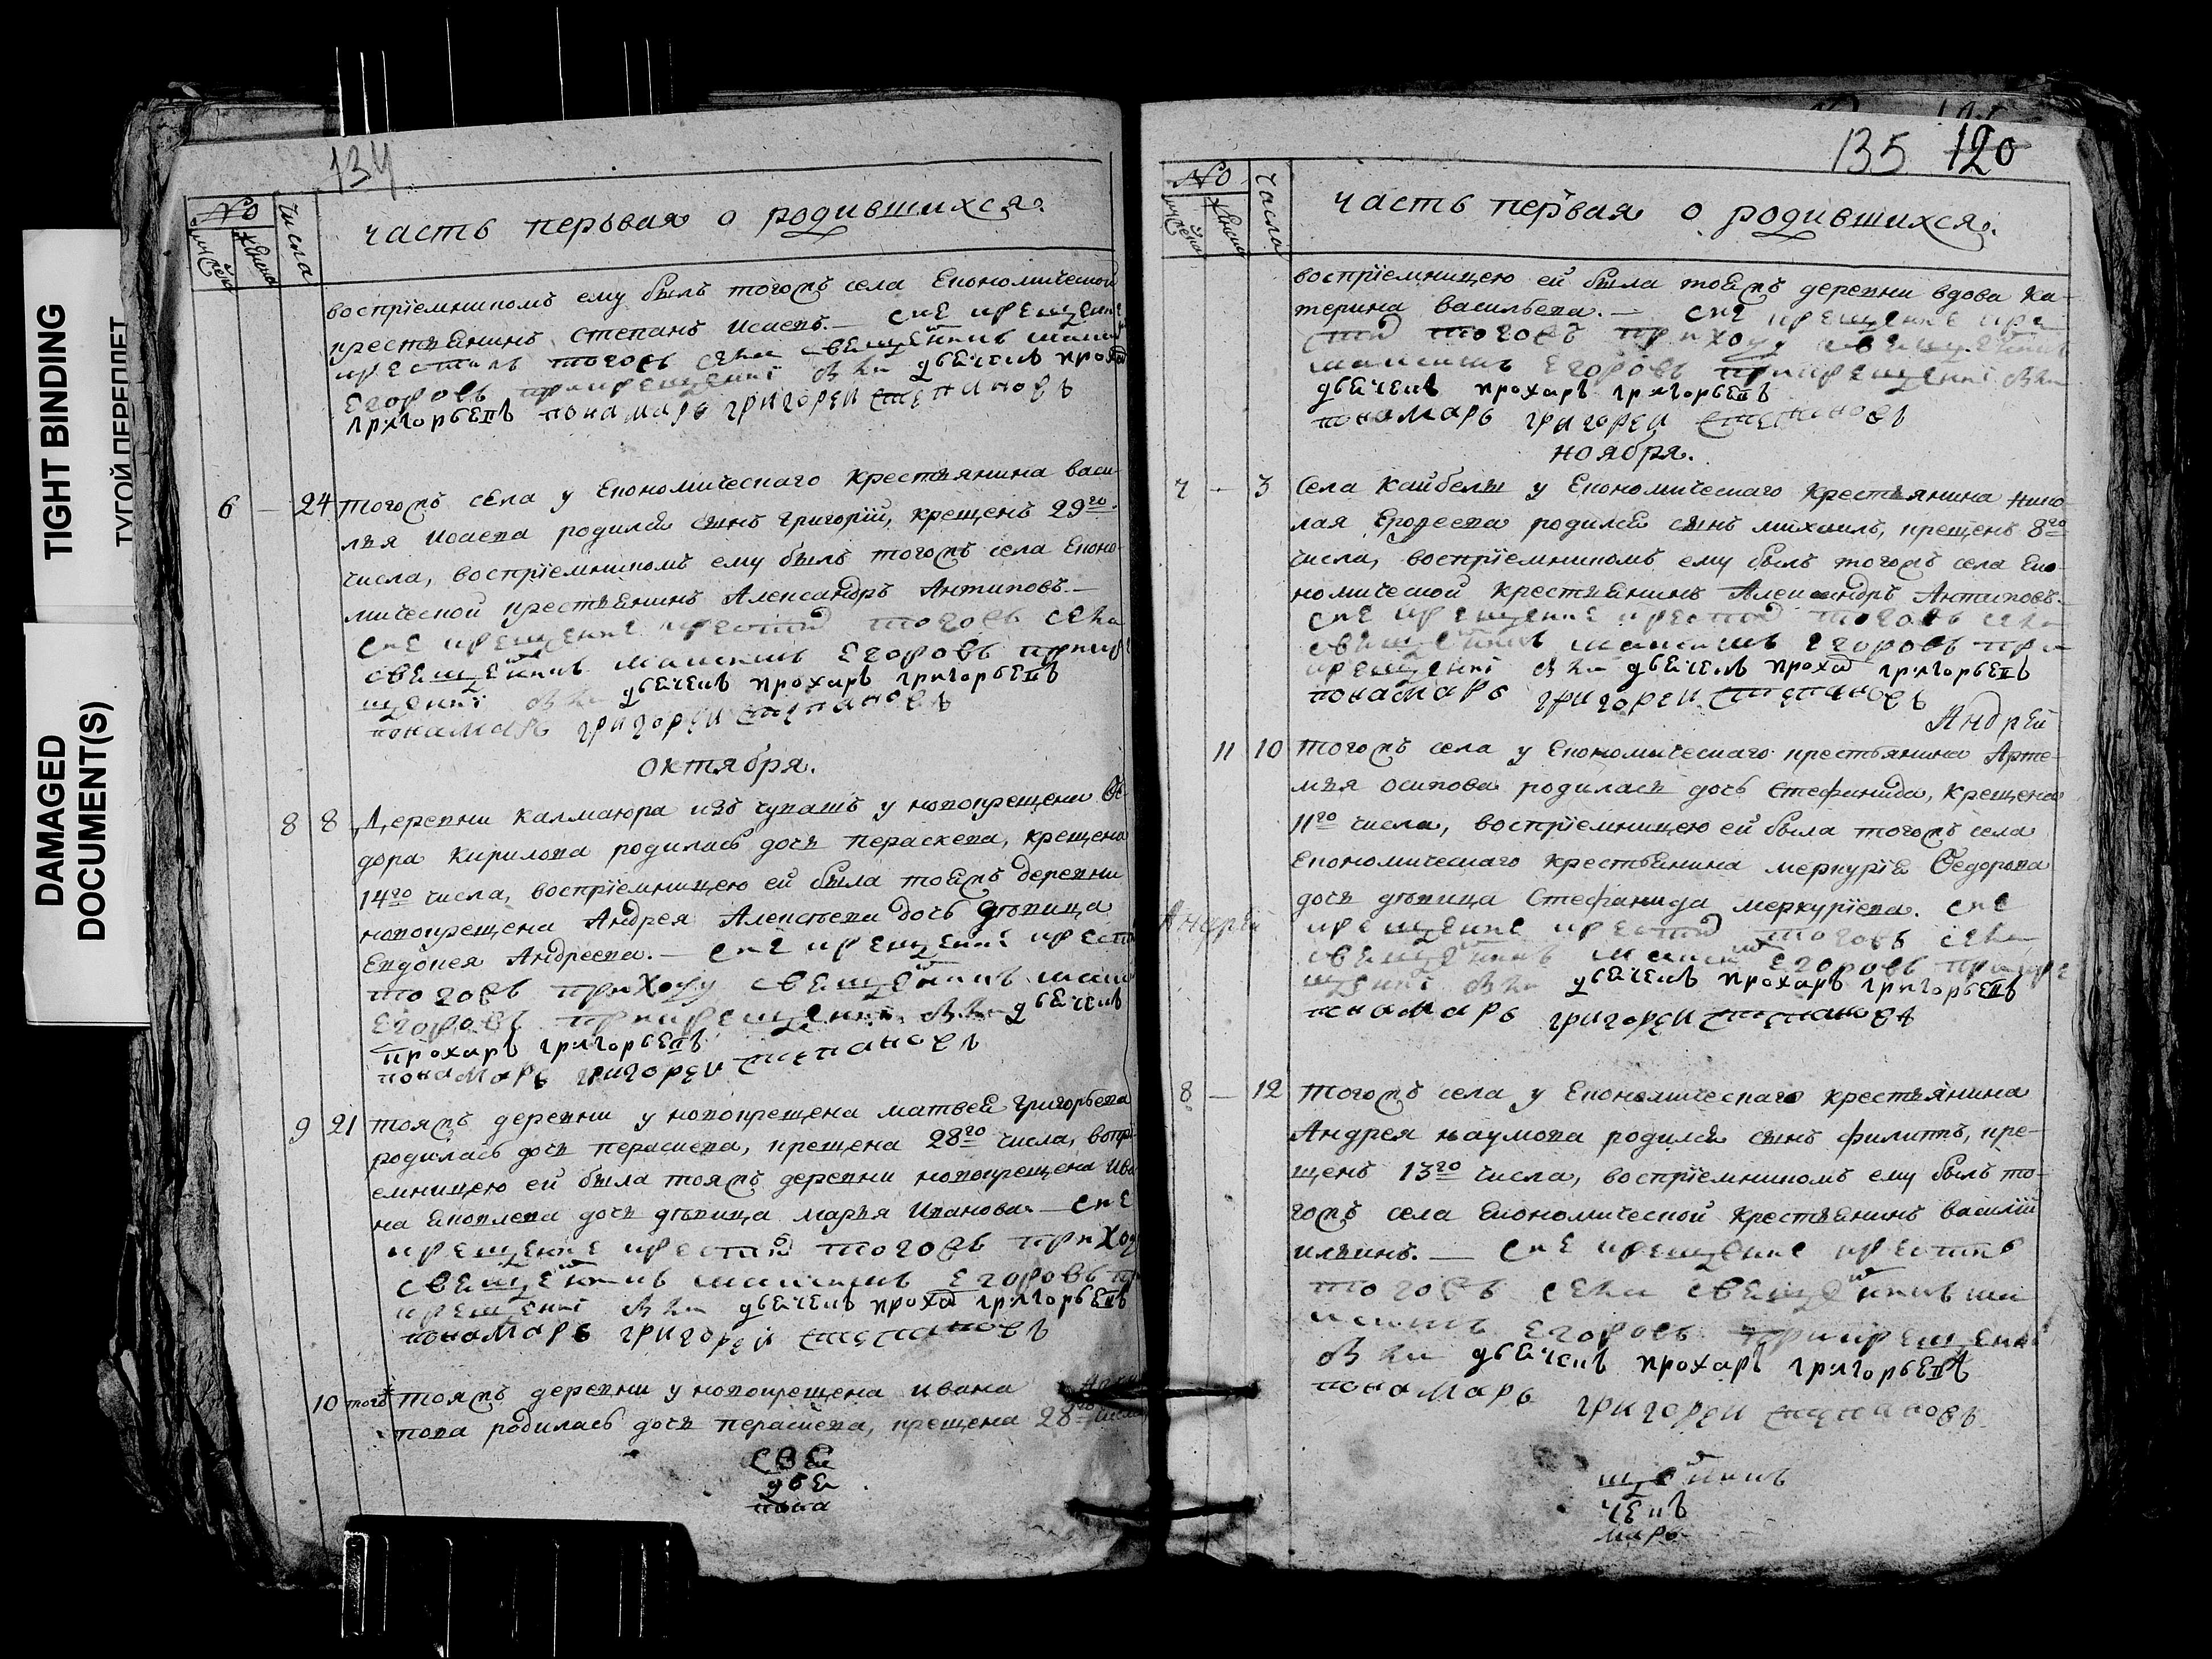 TIGHT BINDING
ТУГОЙ ПЕРЕПЛЕТ
DAMAGED
DOCUMENT(S)
134
No
числа
часть первая о родившихся.
воспріемникомъ ему былъ тогожъ села Економической
крестьянинъ Степанъ Исаевъ. — сие крещение
крестилъ тогоже села священникъ
Егоровъ при крещении был дьячекъ
григорьевъ понамарь григореи степановъ
6 — 24 тогожъ села у Економическаго крестьянина Васи-
лья Исаева родился сынъ Григорій, крещенъ 29го
числа, воспріемникомъ ему былъ тогожъ села Еконо-
мической крестьянинъ Александръ Антиповъ. —
сие крещение крестил тогоже села
священникъ максимъ Егоровъ
дьячекъ прохаръ григорьевъ
понамарь григореи степановъ
октября.
8 8 Деревни Калмаюра изъ чувашъ у новокрещена Ѳе-
дора Кирилова родилась дочь Параскева, крещена
14го числа, воспріемницею ей была тояжъ деревни
новокрещена Андрея Алексѣева дочь дѣвица
Евдокея Андреева. — сие крещение
тогоже приходу священникъ
Егоровъ при крещении был дьячекъ
прохаръ григорьевъ
понамарь григореи степановъ
9 21 тояжъ деревни у новокрещена матвея Григорьева
родилась дочь Параскева, крещена 28го числа, воспрі-
емницею ей была тояжъ деревни новокрещена Ива-
на Яковлева дочь дѣвица марья Иванова. — сие
крещение крестил тогоже приходу
священникъ максимъ Егоровъ
крещении был дьячекъ прохар григорьевъ
понамарь григореи степановъ
10 тогожъ тояжъ деревни у новокрещена Ивана
това родилась дочь Параскева, крещена 28го числа
све
дья
пона
135 120
No
числа
часть первая о родившихся.
воспріемницею ей была тояжъ деревни вдова Ка-
терина Васильева. — сие крещение кре
стил тогоже приходу священникъ
максимъ Егоровъ при крещении был
дьячекъ прохаръ григорьевъ
понамарь григореи степановъ
ноября.
7 — 3 Села Кайбелы у Економическаго крестьянина Нико-
лая Ерофеева родился сынъ михаилъ, крещенъ 8го
числа, воспріемникомъ ему былъ тогожъ села Еко-
номической крестьянинъ Александръ Антиповъ. —
сие крещение крестил тогоже села
священникъ максимъ Егоровъ при
крещении был дьячекъ прохар григорьевъ
понамарь григореи степановъ
Андрей
11 10 тогожъ села у Економическаго крестьянина Арте-
мья осипова родилась дочь Стефанида, крещена
11го числа, воспріемницею ей была тогожъ села
Економическаго крестьянина меркурія Ѳедорова
дочь дѣвица Стефанида меркуріева. сие
Андрей крещение крестил тогоже села
священникъ максимъ Егоровъ при кре
щении был дьячекъ прохаръ григорьевъ
понамарь григореи степановъ
8 — 12 тогожъ села у Економическаго крестьянина
Андрея наумова родился сынъ филиппъ, кре-
щенъ 13го числа, воспріемникомъ ему былъ то-
гожъ села Економической крестьянинъ василій
ильинъ. — сие крещение крестилъ
тогоже села священникъ ма
ксимъ Егоровъ при крещении
был дьячекъ прохаръ григорьевъ
понамарь григореи степановъ
щенникъ
чекъ
марь